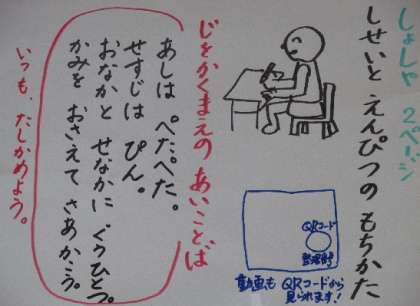 しょしゃ 2ページ
しせいと えんぴつの もちかた
QRコード
動画も QRコードから
見られます!
じをかくまえの あいことば
あしは ぺたぺた。
せすじは ぴん。
おなかと せなかに ぐうひとつ。
かみを おさえて さあかこう。
いつも、たしかめよう。